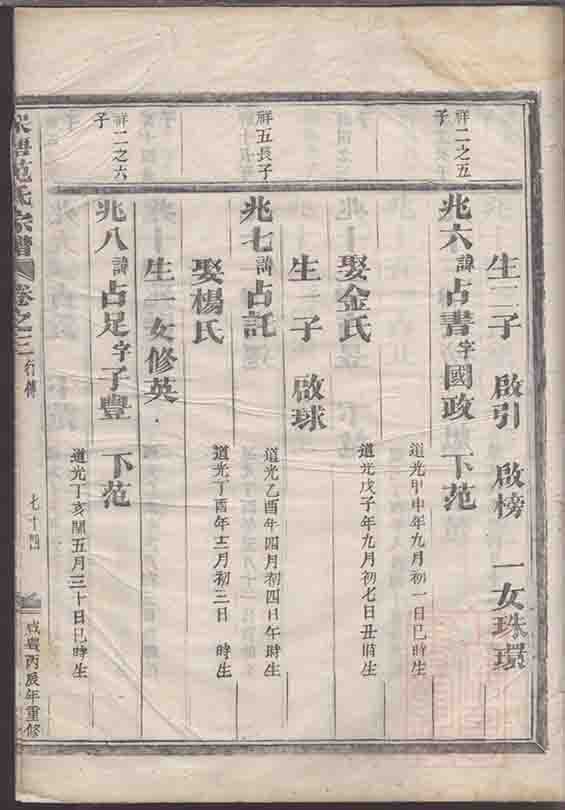 生二子 啟引 啟榜 一女珠環
祥二之五子
兆六 諱占書 字國政 下范
道光甲申年九月初一日巳時生
娶金氏
道光戊子年九月初七日丑時生
生一子 啟球
祥五長子
兆七 諱占託
道光乙酉年四月初四日午時生
娶楊氏
道光丁酉年十二月初三日 時生
生一女修英
祥二之六子
兆八 諱占足 字子豐 下范
道光丁亥閏五月三十日巳時生
范氏宗譜 卷之三 行傳 七十四 咸豐丙辰年重修